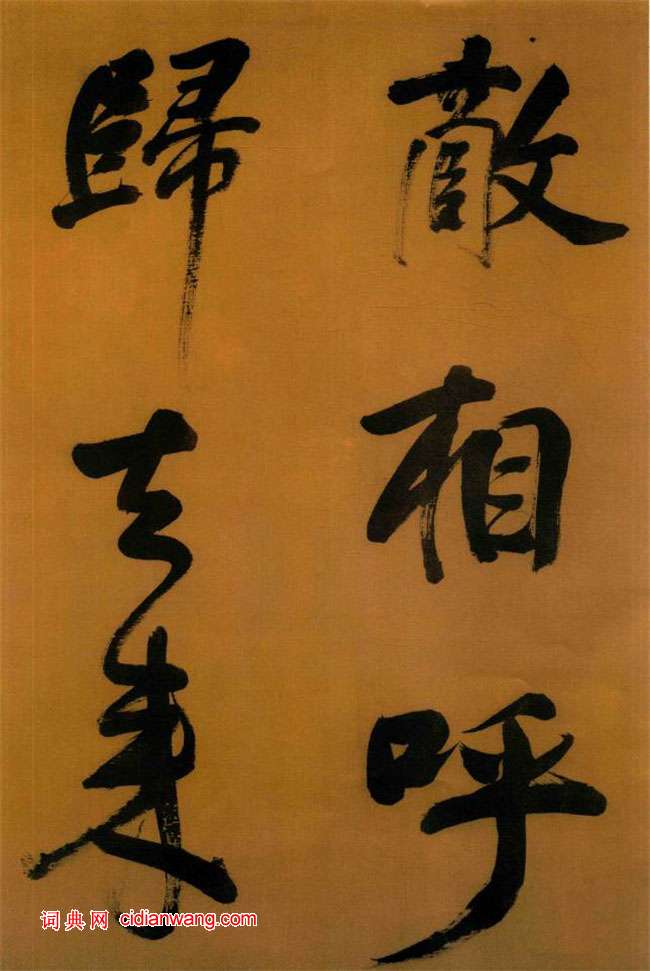 散相呼
歸去来
词典网 cidianwang.com